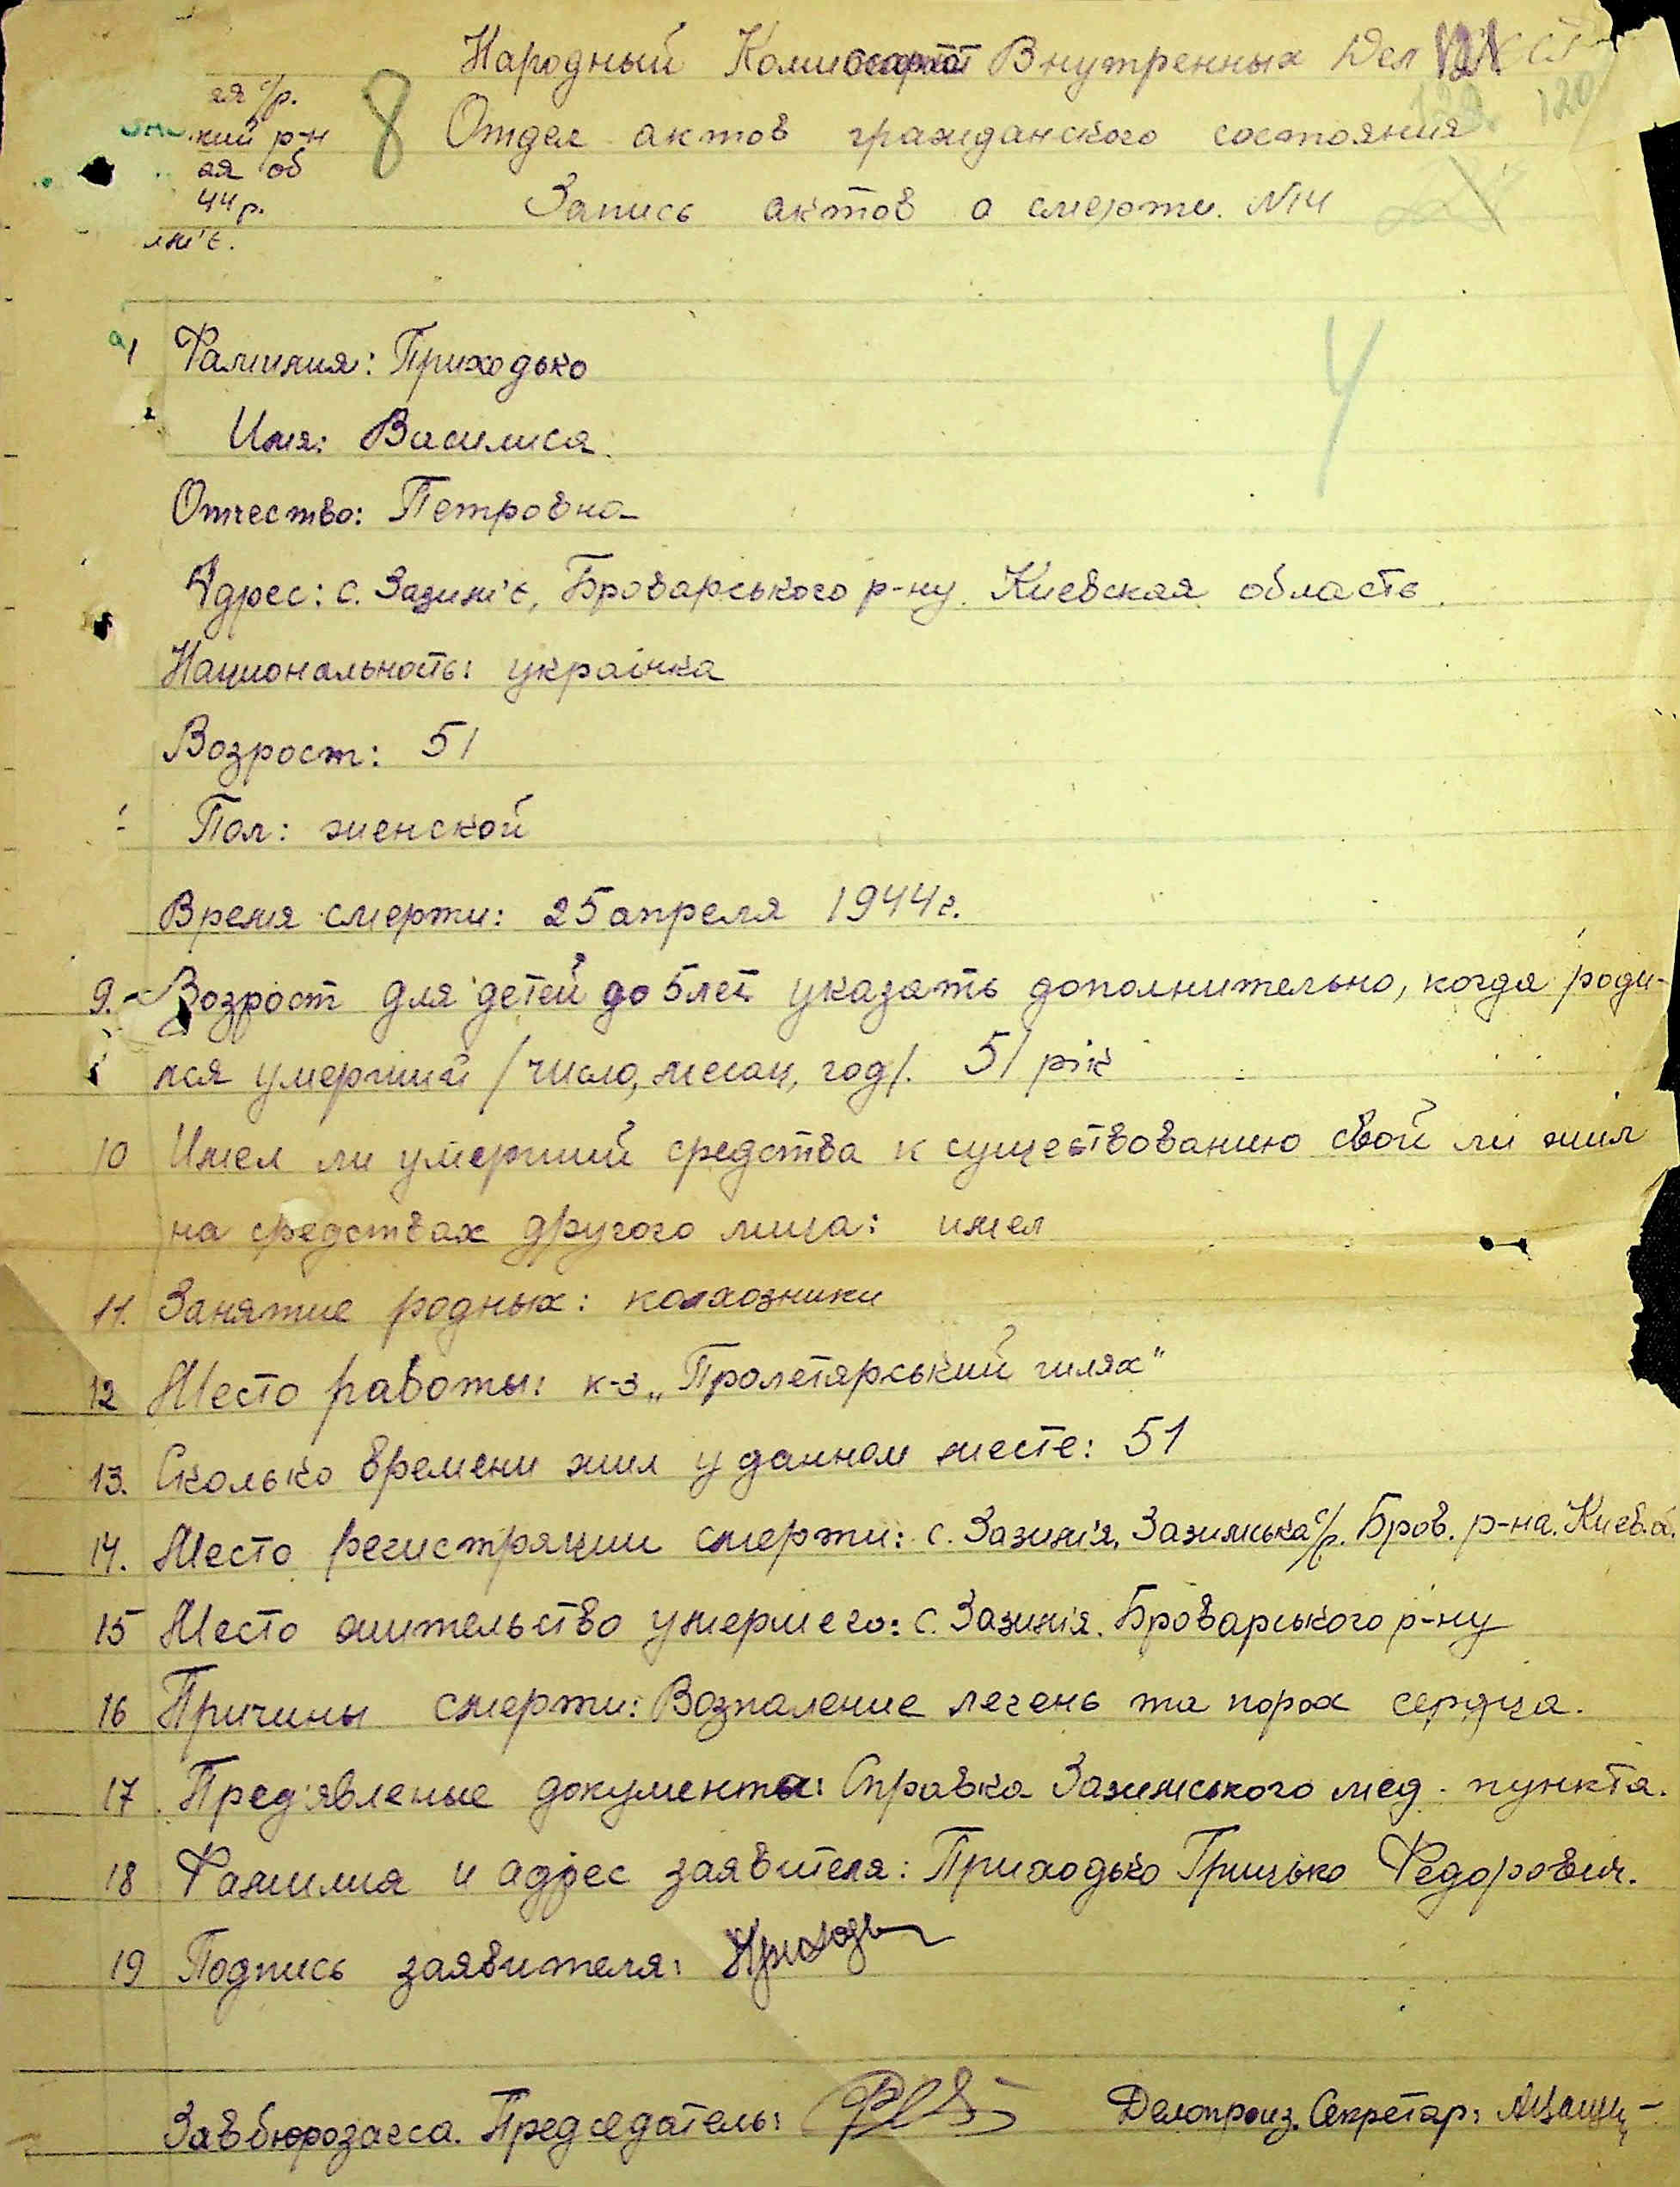 Народный Комиссариат Внутренных Дел
ая с/р.
кий р-н 8 Отдел актов гражданского состояния 120
ая об
44 р. Запись актов о смерти. N14
имʼє.
1 Фамилия: Приходько 4
Имя: Василиса
Отчество: Петровна
Адрес: с. Зазимʼє, Броварського р-ну. Киевская область.
Национальность: українка
Возрост: 51
Пол: женской
Время смерти: 25 апреля 1944 г.
9. Возрост для детей до 5 лет указать дополнительно, когда роди-
лся умерший /число, месац, год/. 51 рік
10 Имел ли умерший средства к существованию свой ли жил
на средствах другого лица: имел
11. Занятие родных: колхозники
12 Место работы: к-з „Пролетярський шлях"
13. Сколько времени жил у данном месте: 51
14. Место регистряции смерти: с. Зазимʼя, Зазимська с/р. Бров. р-на. Киев.о.
15 Место жительство умершего: с. Зазимʼя. Броварського р-ну
16 Причины смерти: Возпаление легень та порох сердца.
17. Предʼявленые документа: Справка Зазимського мед. пункта.
18 Фамилия и адрес заявителя: Приходько Грицько Федорович.
19 Подпись заявителя: Приходь
Завбюрозагса. Председатель: Делопроиз. Секретар: